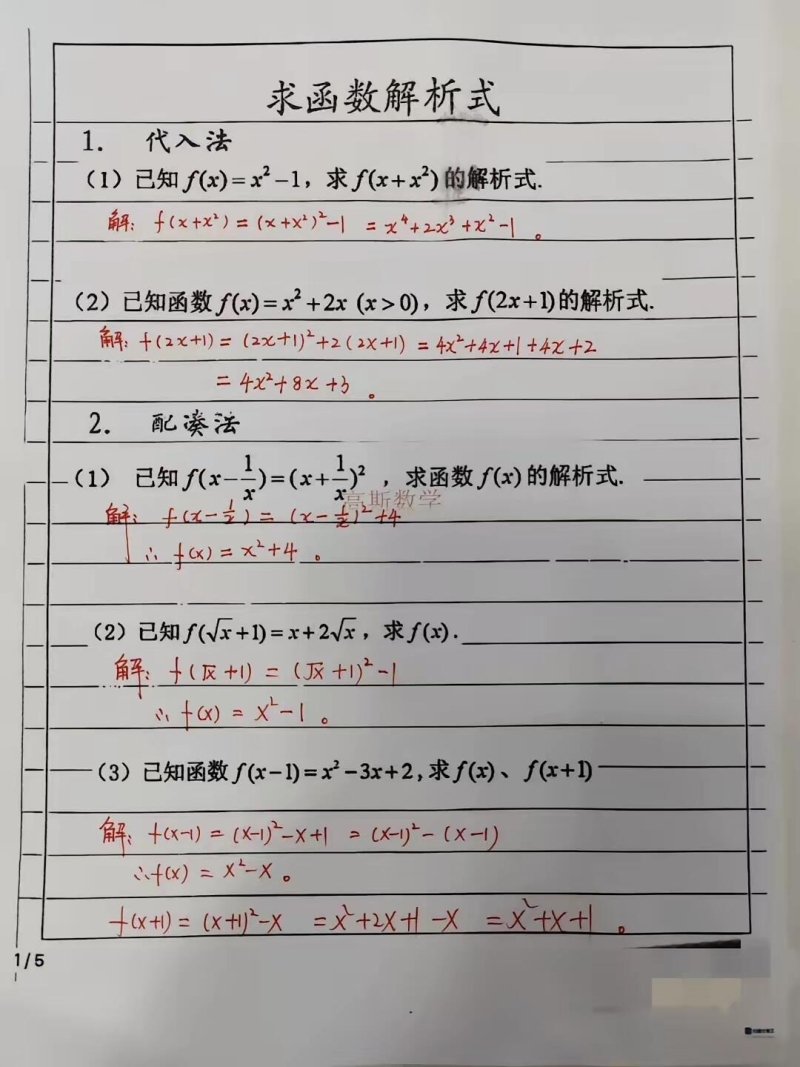 求函数解析式
1. 代入法
(1) 已知 f(x)=x²-1，求 f(x+x²) 的解析式.
解: f(x+x²)=(x+x²)²-1 = x⁴+2x³+x²-1。
(2) 已知函数 f(x)=x²+2x (x>0)，求 f(2x+1)的解析式.
解: f(2x+1)=(2x+1)²+2(2x+1)=4x²+4x+1+4x+2
=4x²+8x+3。
2. 配凑法
(1) 已知 f(x-1/x)=(x+1/x)²，求函数 f(x) 的解析式.
高斯数学
解: f(x-1/x)=(x-1/x)²+4
∴ f(x)=x²+4。
(2) 已知 f(√x+1)=x+2√x，求 f(x).
解: f(√x+1)=(√x+1)²-1
∴ f(x)=x²-1。
(3) 已知函数 f(x-1)=x²-3x+2,求 f(x)、f(x+1)
解: f(x-1)=(x-1)²-x+1=(x-1)²-(x-1)
∴f(x)=x²-x。
f(x+1)=(x+1)²-x =x²+2x+1-x =x²+x+1。
1/5